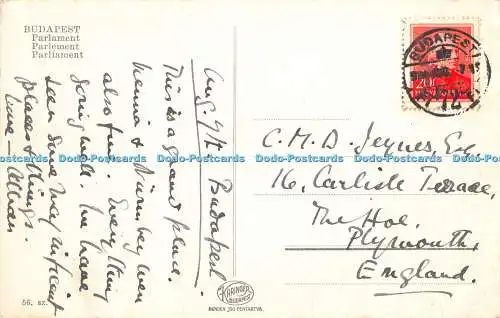 BUDAPEST
Parlament
Parlement
Parliament
Aug. 9th Budapest
This is a grand place.
Vienna & Nürnberg were
also fine. Everything
going well. We have
seen some magnificent
places & things.
Love —
BUDAPEST
72
C. M. D. Jeynes, Esq.
16, Carlisle Terrace,
The Hoe,
Plymouth,
England.
BARINGER
BUDAPEST
MINDEN JOG FENTARTVA.
56. sz.
Dodo-Postcards.com Dodo-Postcards.com Dodo-Postcards.com Dodo-Postcards.com Dodo-Postcards.com